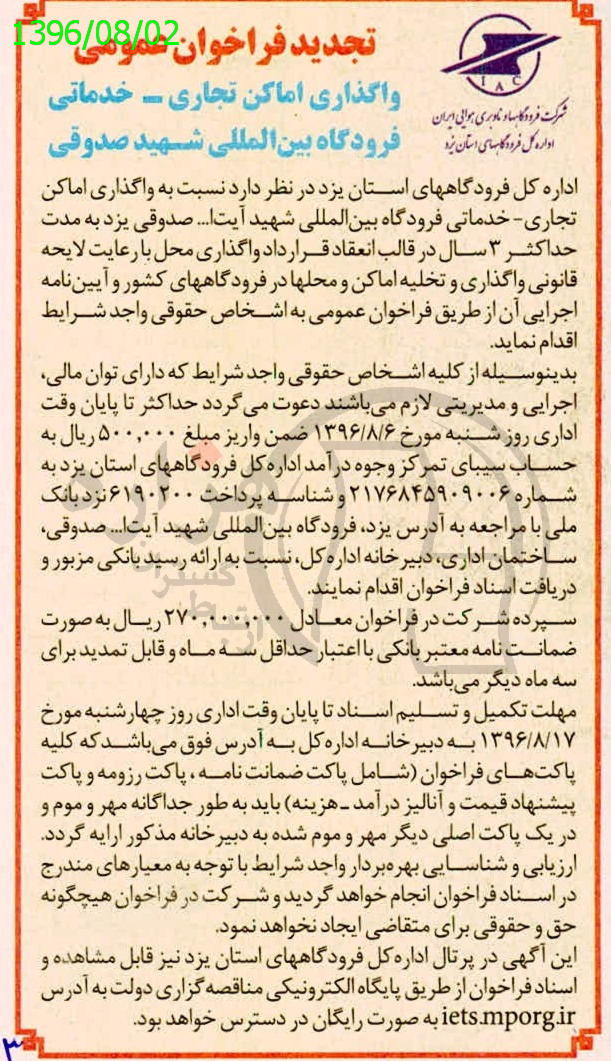 1396/08/02
تجدید فراخوان عمومی
واگذاری اماکن تجاری - خدماتی
فرودگاه بین‌المللی شهید صدوقی
IAC
شرکت فرودگاهها و ناوبری هوایی ایران
اداره کل فرودگاههای استان یزد
اداره کل فرودگاههای استان یزد در نظر دارد نسبت به واگذاری اماکن
تجاری - خدماتی فرودگاه بین‌المللی شهید آیت‌ا... صدوقی یزد به مدت
حداکثر ۳ سال در قالب انعقاد قرارداد واگذاری محل با رعایت لایحه
قانونی واگذاری و تخلیه اماکن و محلها در فرودگاههای کشور و آیین‌نامه
اجرایی آن از طریق فراخوان عمومی به اشخاص حقوقی واجد شرایط
اقدام نماید.
بدینوسیله از کلیه اشخاص حقوقی واجد شرایط که دارای توان مالی،
اجرایی و مدیریتی لازم می‌باشند دعوت می‌گردد حداکثر تا پایان وقت
اداری روز شنبه مورخ ۱۳۹۶/۸/۶ ضمن واریز مبلغ ۵۰۰,۰۰۰ ریال به
حساب سیبای تمرکز وجوه درآمد اداره کل فرودگاههای استان یزد به
شماره ۲۱۷۶۸۴۵۹۰۹۰۰۶ و شناسه پرداخت ۶۱۹۰۲۰۰ نزد بانک
ملی با مراجعه به آدرس یزد، فرودگاه بین‌المللی شهید آیت‌ا... صدوقی،
ساختمان اداری، دبیرخانه اداره کل، نسبت به ارائه رسید بانکی مزبور و
دریافت اسناد فراخوان اقدام نمایند.
سپرده شرکت در فراخوان معادل ۲۷۰,۰۰۰,۰۰۰ ریال به صورت
ضمانت نامه معتبر بانکی با اعتبار حداقل سه ماه و قابل تمدید برای
سه ماه دیگر می‌باشد.
مهلت تکمیل و تسلیم اسناد تا پایان وقت اداری روز چهارشنبه مورخ
۱۳۹۶/۸/۱۷ به دبیرخانه اداره کل به آدرس فوق می‌باشد که کلیه
پاکت‌های فراخوان (شامل پاکت ضمانت نامه، پاکت رزومه و پاکت
پیشنهاد قیمت و آنالیز درآمد - هزینه) باید به طور جداگانه مهر و موم و
در یک پاکت اصلی دیگر مهر و موم شده به دبیرخانه مذکور ارایه گردد.
ارزیابی و شناسایی بهره‌بردار واجد شرایط با توجه به معیارهای مندرج
در اسناد فراخوان انجام خواهد گردید و شرکت در فراخوان هیچگونه
حق و حقوقی برای متقاضی ایجاد نخواهد نمود.
این آگهی در پرتال اداره کل فرودگاههای استان یزد نیز قابل مشاهده و
اسناد فراخوان از طریق پایگاه الکترونیکی مناقصه گزاری دولت به آدرس
iets.mporg.ir به صورت رایگان در دسترس خواهد بود.
۳